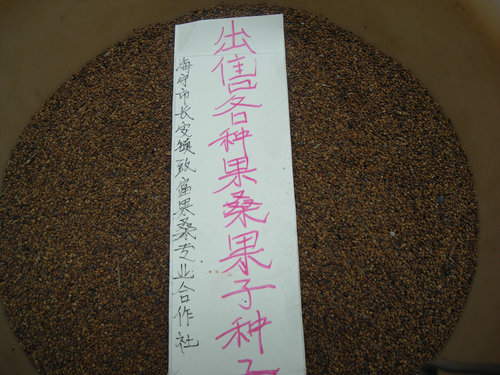 出售各种果桑果子种子
海宁市长安镇致富果桑专业合作社